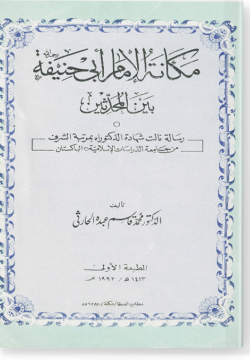 مكانة الإمام أبي حنيفة
بين المحدثين
رسالة نالت شهادة الدكتوراه بمرتبة الشرف
من جامعة الدراسات الإسلامية - الباكستان
تأليف
الدكتور محمد قاسم عبده الحارثي
الطبعة الأولى
١٤١٣ هـ / ١٩٩٣ م